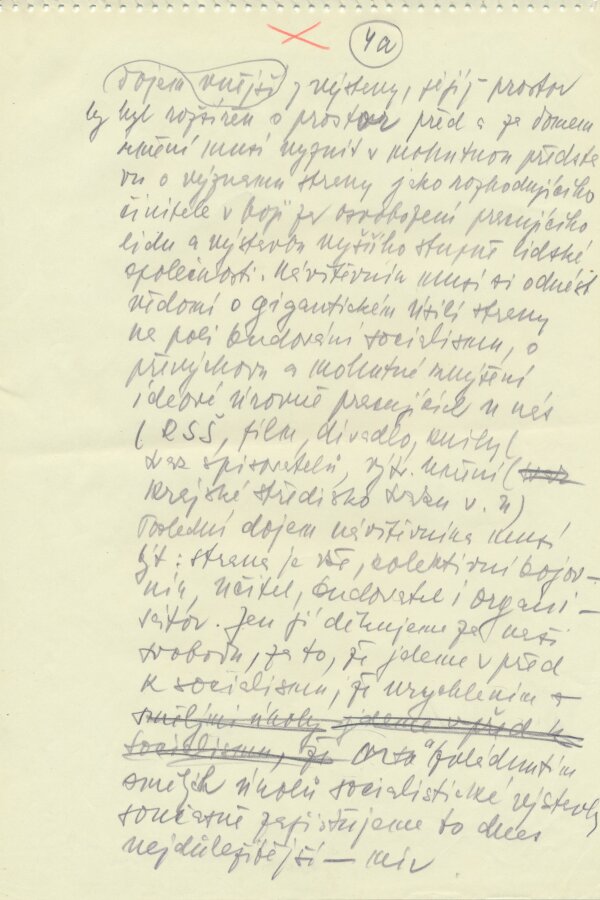 4a
dojem vnější z výstavy, jejíž prostor
by byl rozšířen o prostor před a za domem
umění musí vyznít v mohutnou předsta
vu o významu strany jako rozhodujícího
činitele v boji za osvobození pracujícího
lidu a výstavbu vyššího stupně lidské
společnosti. Návštěvník musí si odnést
vědomí o gigantickém úsilí strany
na poli budování socialismu, o
převýchovu a mohutné zvýšení
ideové úrovně pracujících u nás
(RSŠ, film, divadlo, knihy (
svaz spisovatelů, výtv. umění (svaz
Krajské středisko svazu v. u)
Poslední dojem návštěvníka musí
být: strana je vše, kolektivní bojov-
ník, učitel, budovatel i organi-
sátor. Jen jí děkujeme za naši
svobodu, za to, že jdeme v před
k socialismu, že urychlením
smělými úkoly jdeme v před k
socialismu, že a zvládnutím
smělých úkolů socialistické výstavby
současně zajišťujeme to dnes
nejdůležitější — mír